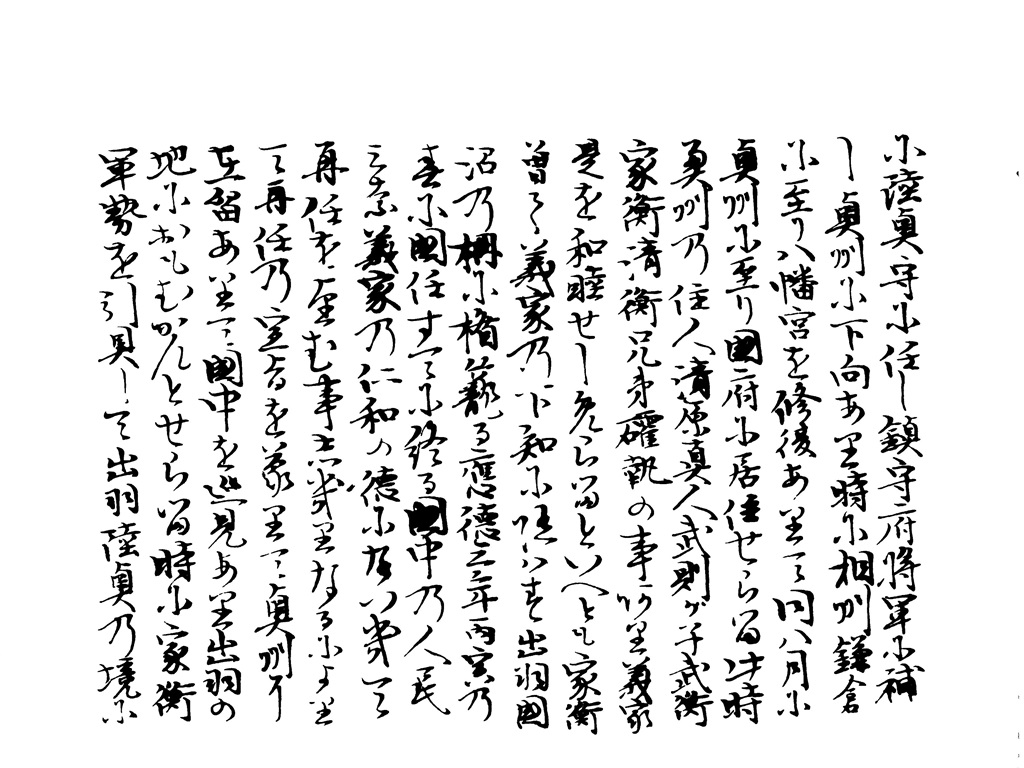 に陸奥守に任し鎮守府将軍に補
し奥州に下向あり時に相州鎌倉
に至り八幡宮を修復ありて同八月に
奥州に至り國府に居住せらる此時
奥州乃住人清原真人武則が子武衡
家衡清衡兄弟確執の事あり義家
是を和睦せしめらるといへとも家衡
曽て義家乃下知に随はす出羽國
沼乃柵に楯籠る應徳三年丙寅乃
春に國任すてに終る國中乃人民
みな義家乃仁和の徳になつきて
再任を望む事しきりなるにより
て再任乃宣旨を蒙りて奥州に
在留ありて國中を巡見あり出羽の
地におもむかんとせらる時に家衡
軍勢を引具して出羽陸奥乃境に